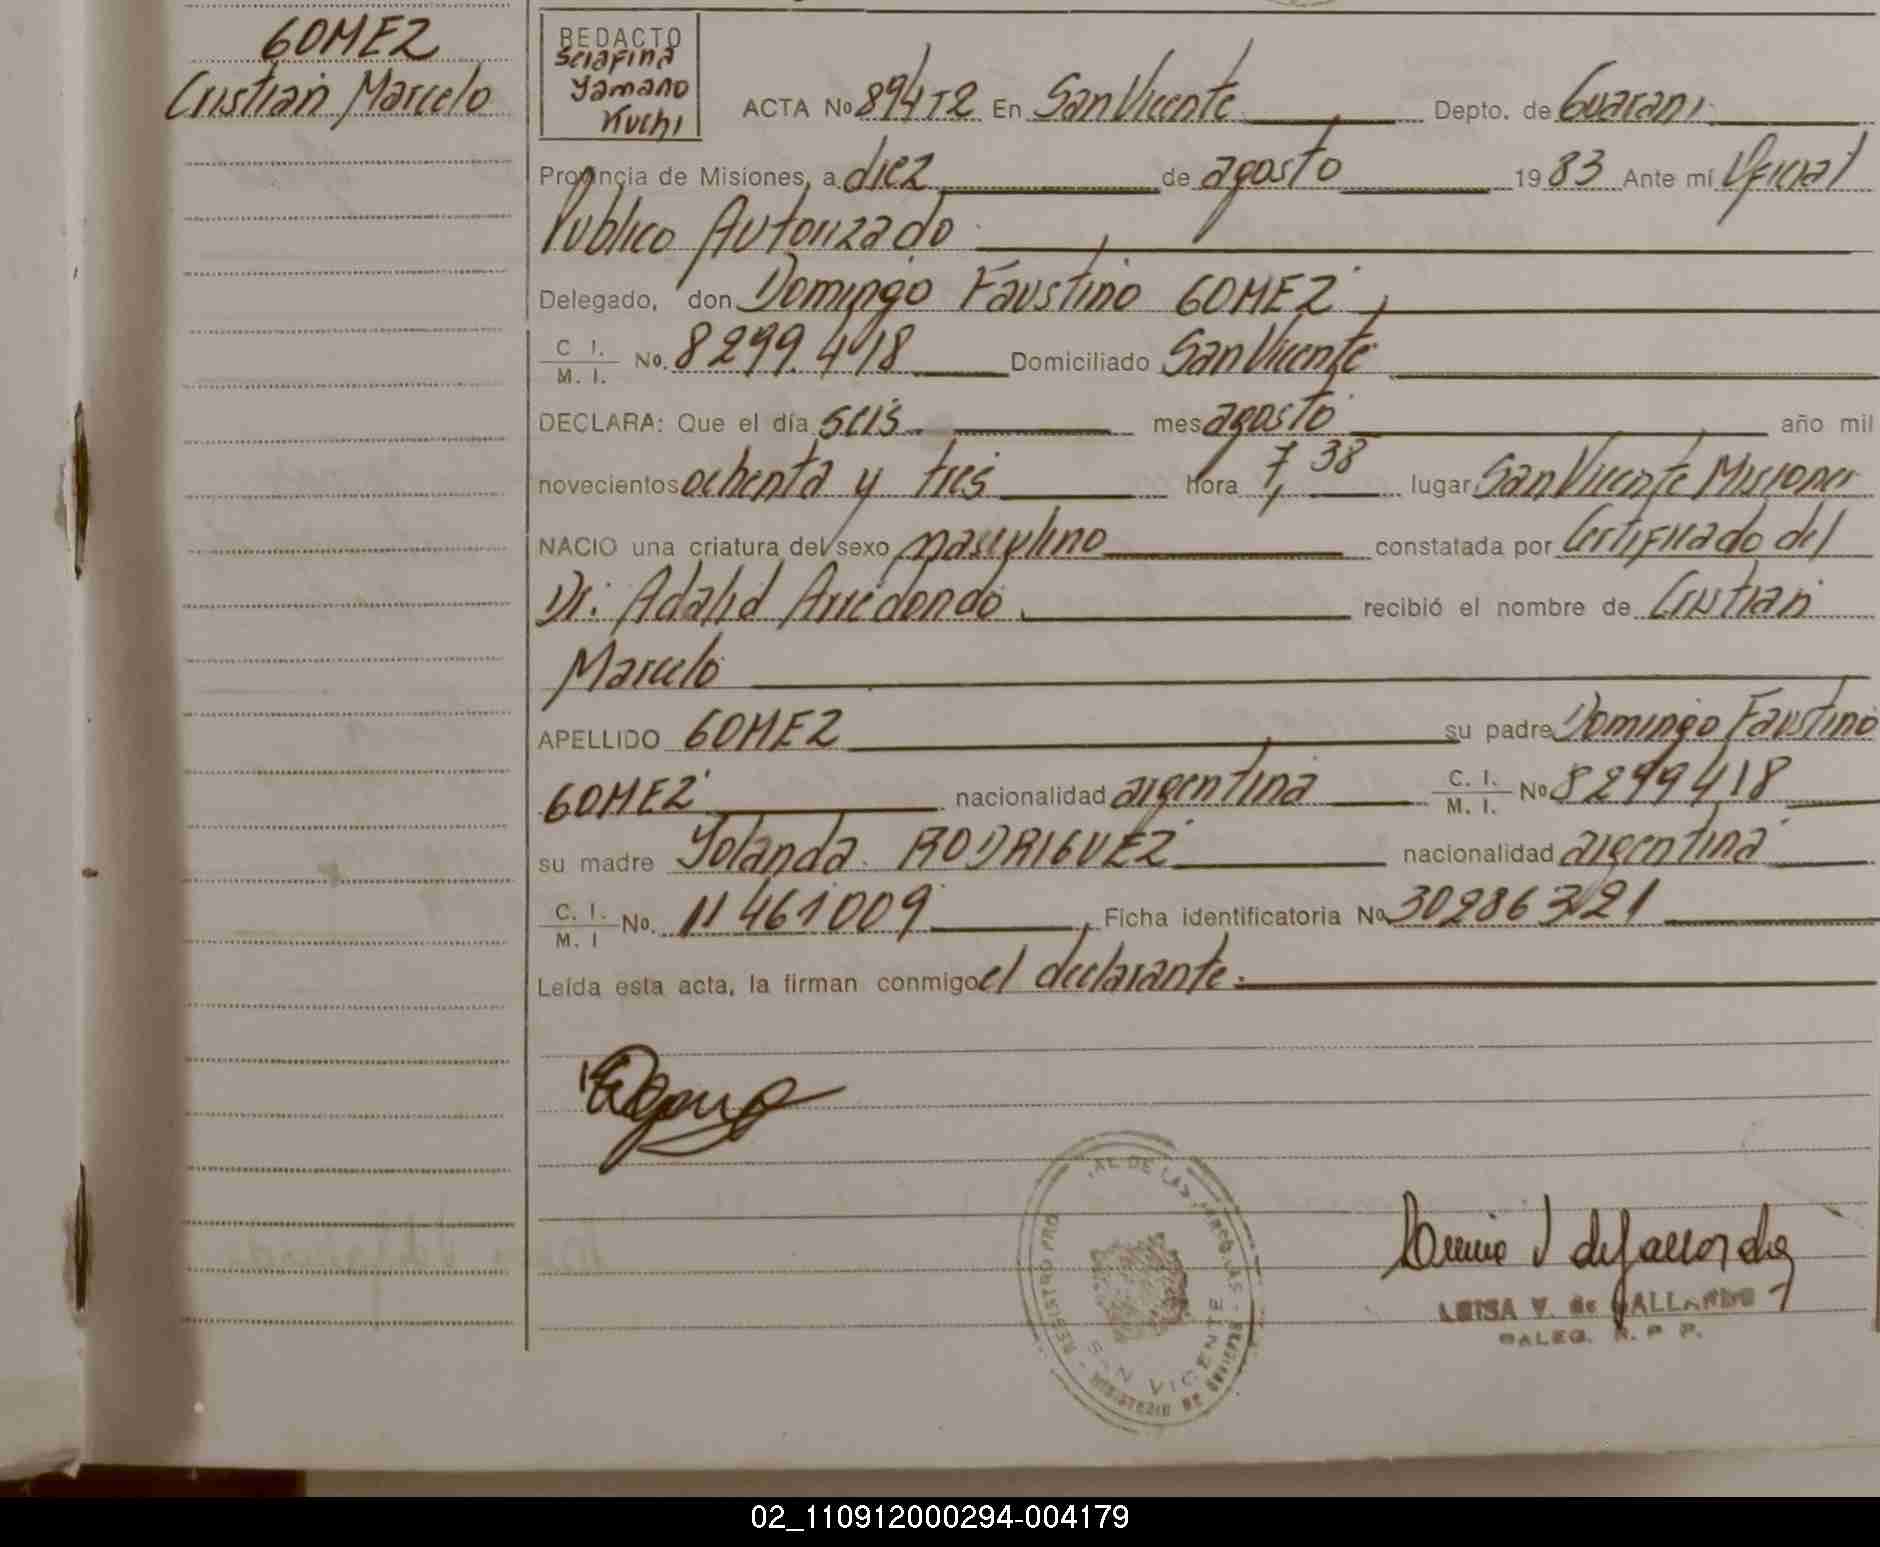 GOMEZ
Cristian Marcelo
REDACTO
Serafina
Yamano
Kuchi
ACTA No 894 T2 En San Vicente Depto. de Guarani
Provincia de Misiones, a diez de agosto 19 83 Ante mí Oficial
Publico Autorizado
Delegado, don Domingo Faustino GOMEZ,
C I. / M. I. No. 8299.418 Domiciliado San Vicente
DECLARA: Que el día seis mes agosto año mil
novecientos ochenta y tres hora 7,38 lugar San Vicente Misiones
NACIO una criatura del sexo masculino constatada por Certificado del
Dr. Adalid Arredondo recibió el nombre de Cristian
Marcelo
APELLIDO GOMEZ su padre Domingo Faustino
GOMEZ nacionalidad argentina C. I. / M. I. No 8299418
su madre Yolanda RODRIGUEZ nacionalidad argentina
C. I. / M. I No. 11461009, Ficha identificatoria No 30286321
Leída esta acta, la firman conmigo el declarante.
REGISTRO PRO AL DE LAS PERSONAS
SAN VICENTE
MINISTERIO DE GOBIERNO
LUISA V. de GALLARDO
DALEG. R. P P.
02_110912000294-004179